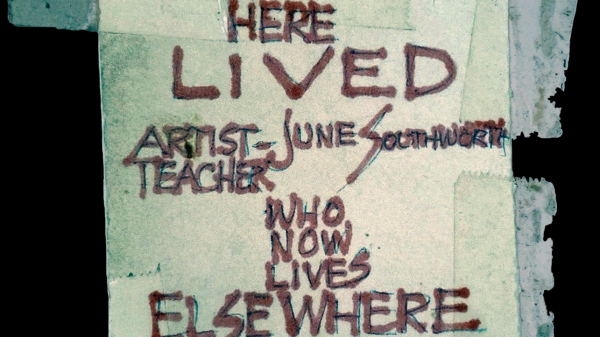 HERE
LIVED
ARTIST-JUNE SOUTHWORTH
TEACHER
WHO
NOW
LIVES
ELSEWHERE